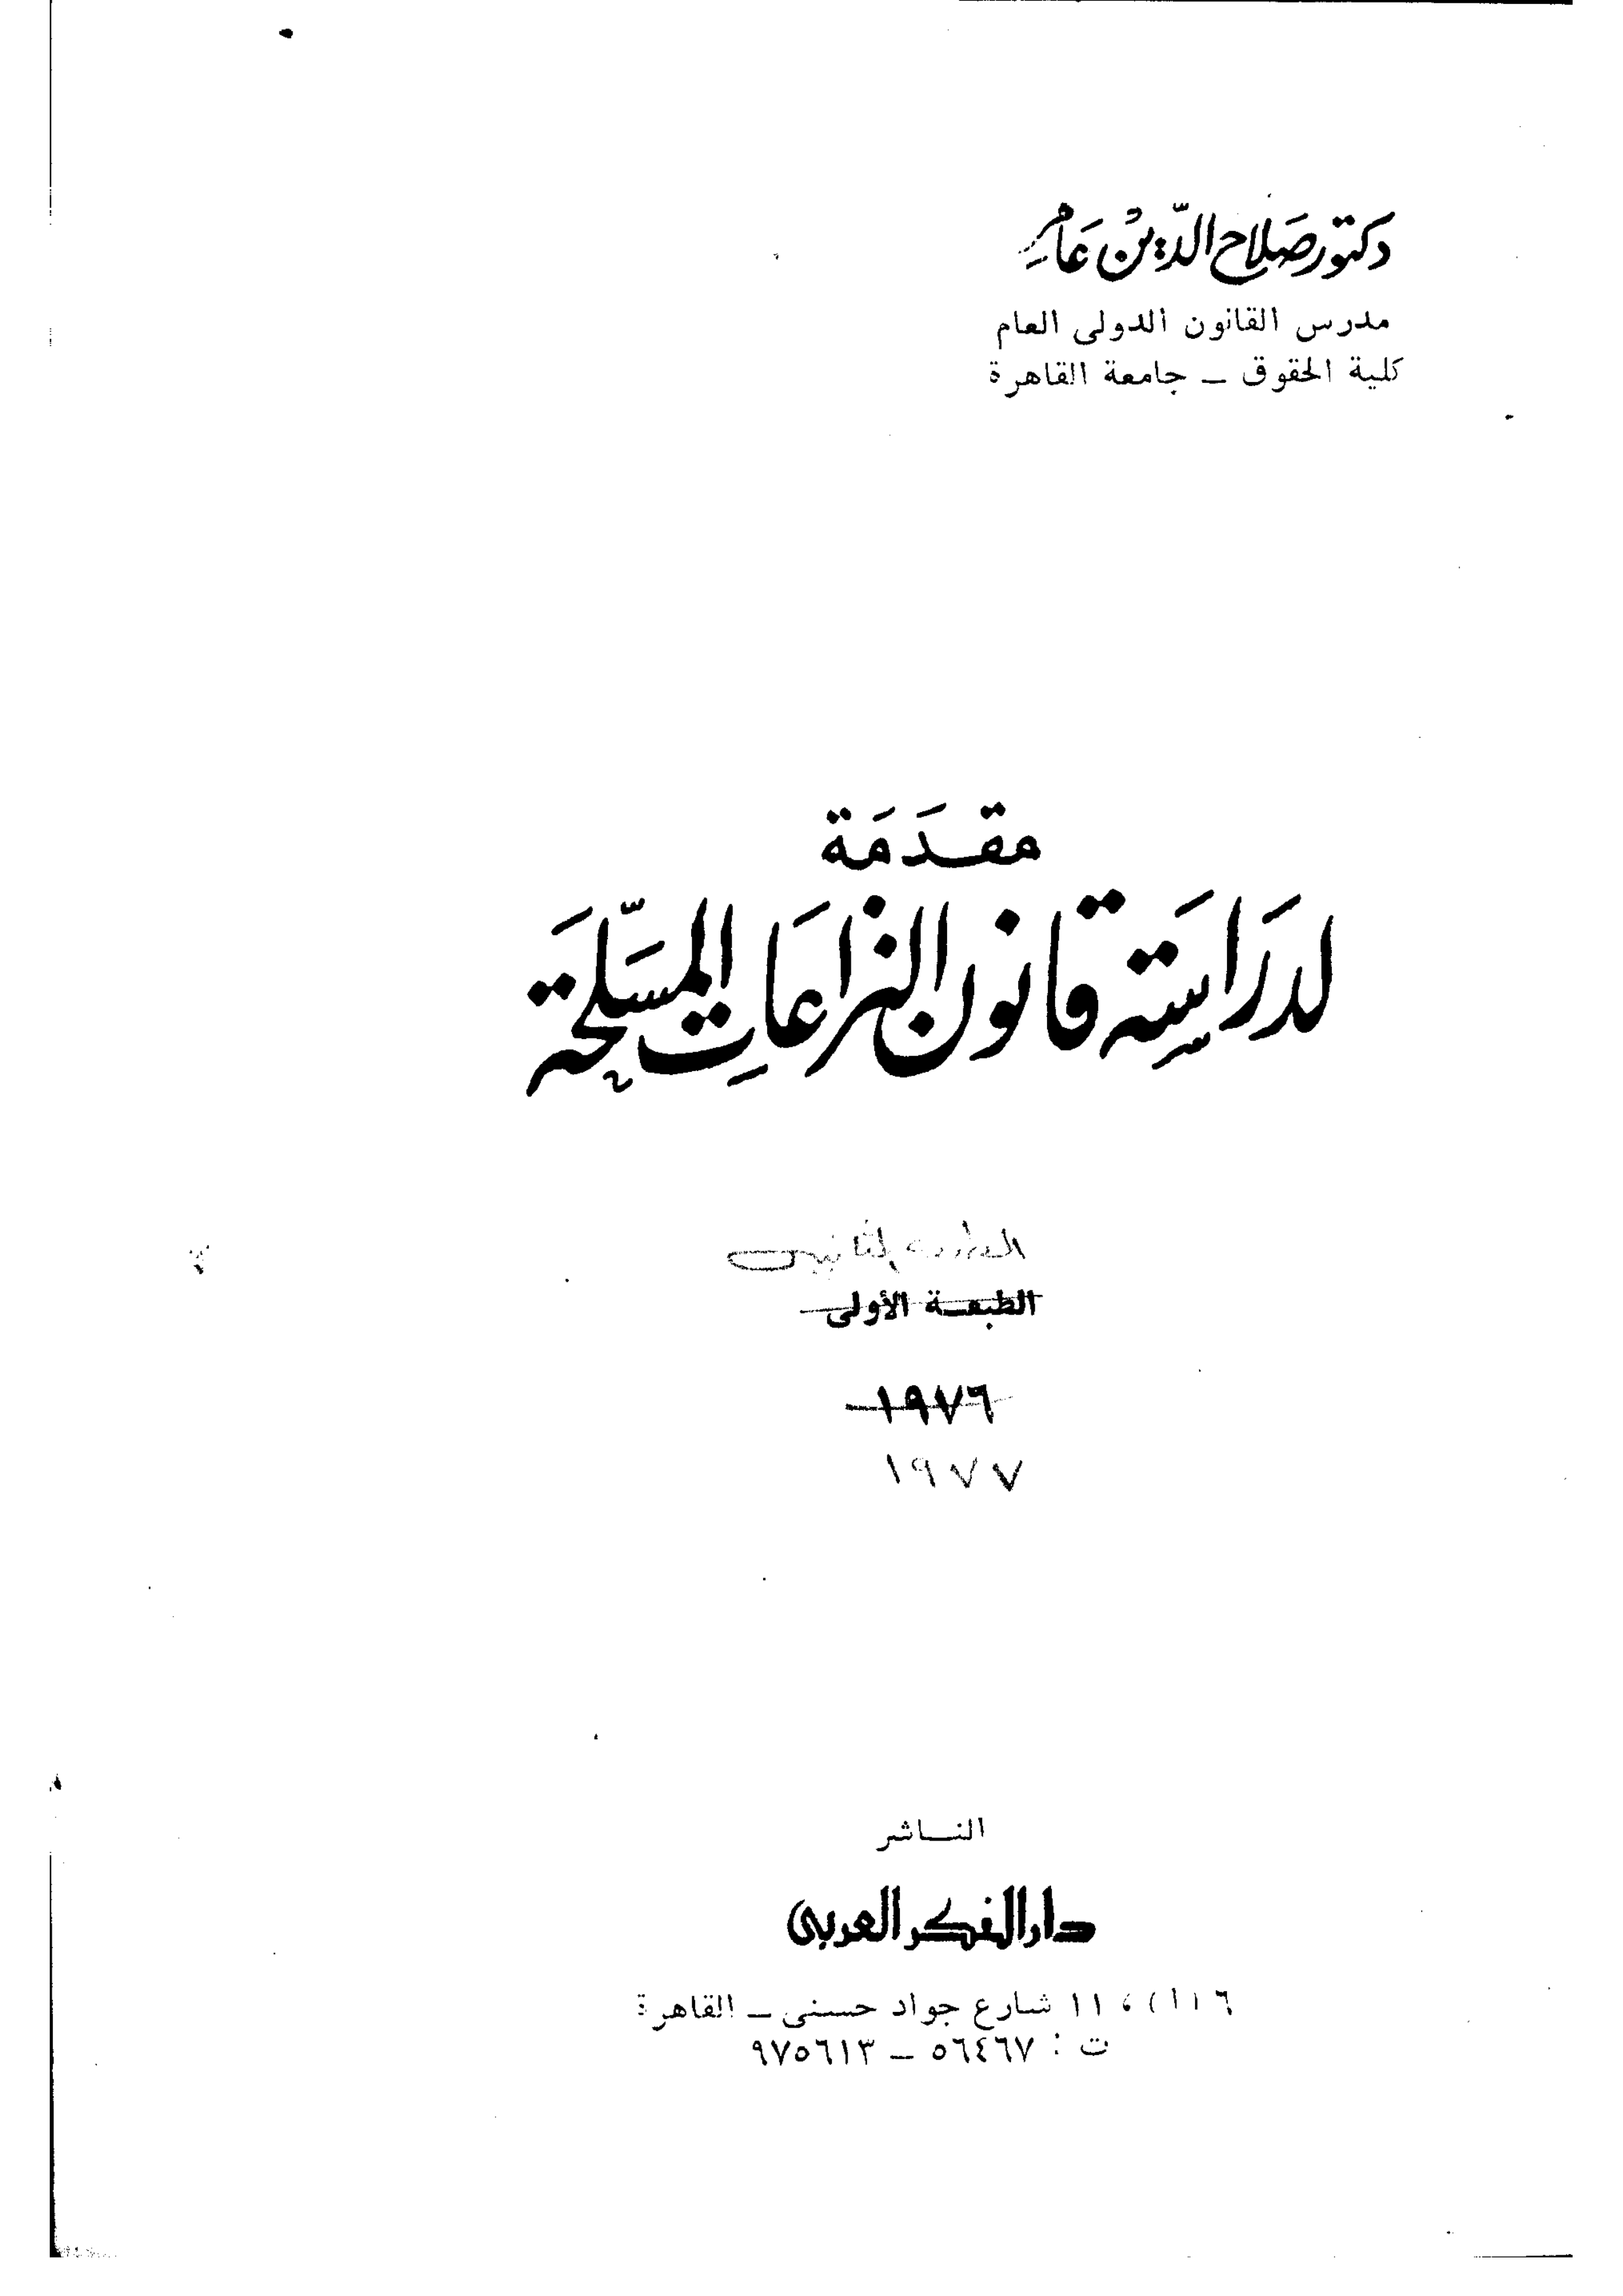 دكتور صلاح الدين عامر
مدرس القانون الدولى العام
كلية الحقوق – جامعة القاهرة
مقدمة
لدراسة قانون النزاعات المسلحة
الطبعة الثانية
الطبعة الأولى
١٩٧٦
١٩٧٧
الناشر
دار الفكر العربى
١١ شارع جواد حسنى – القاهرة
ت : ٥٦٤٦٧ – ٩٧٥٦١٣